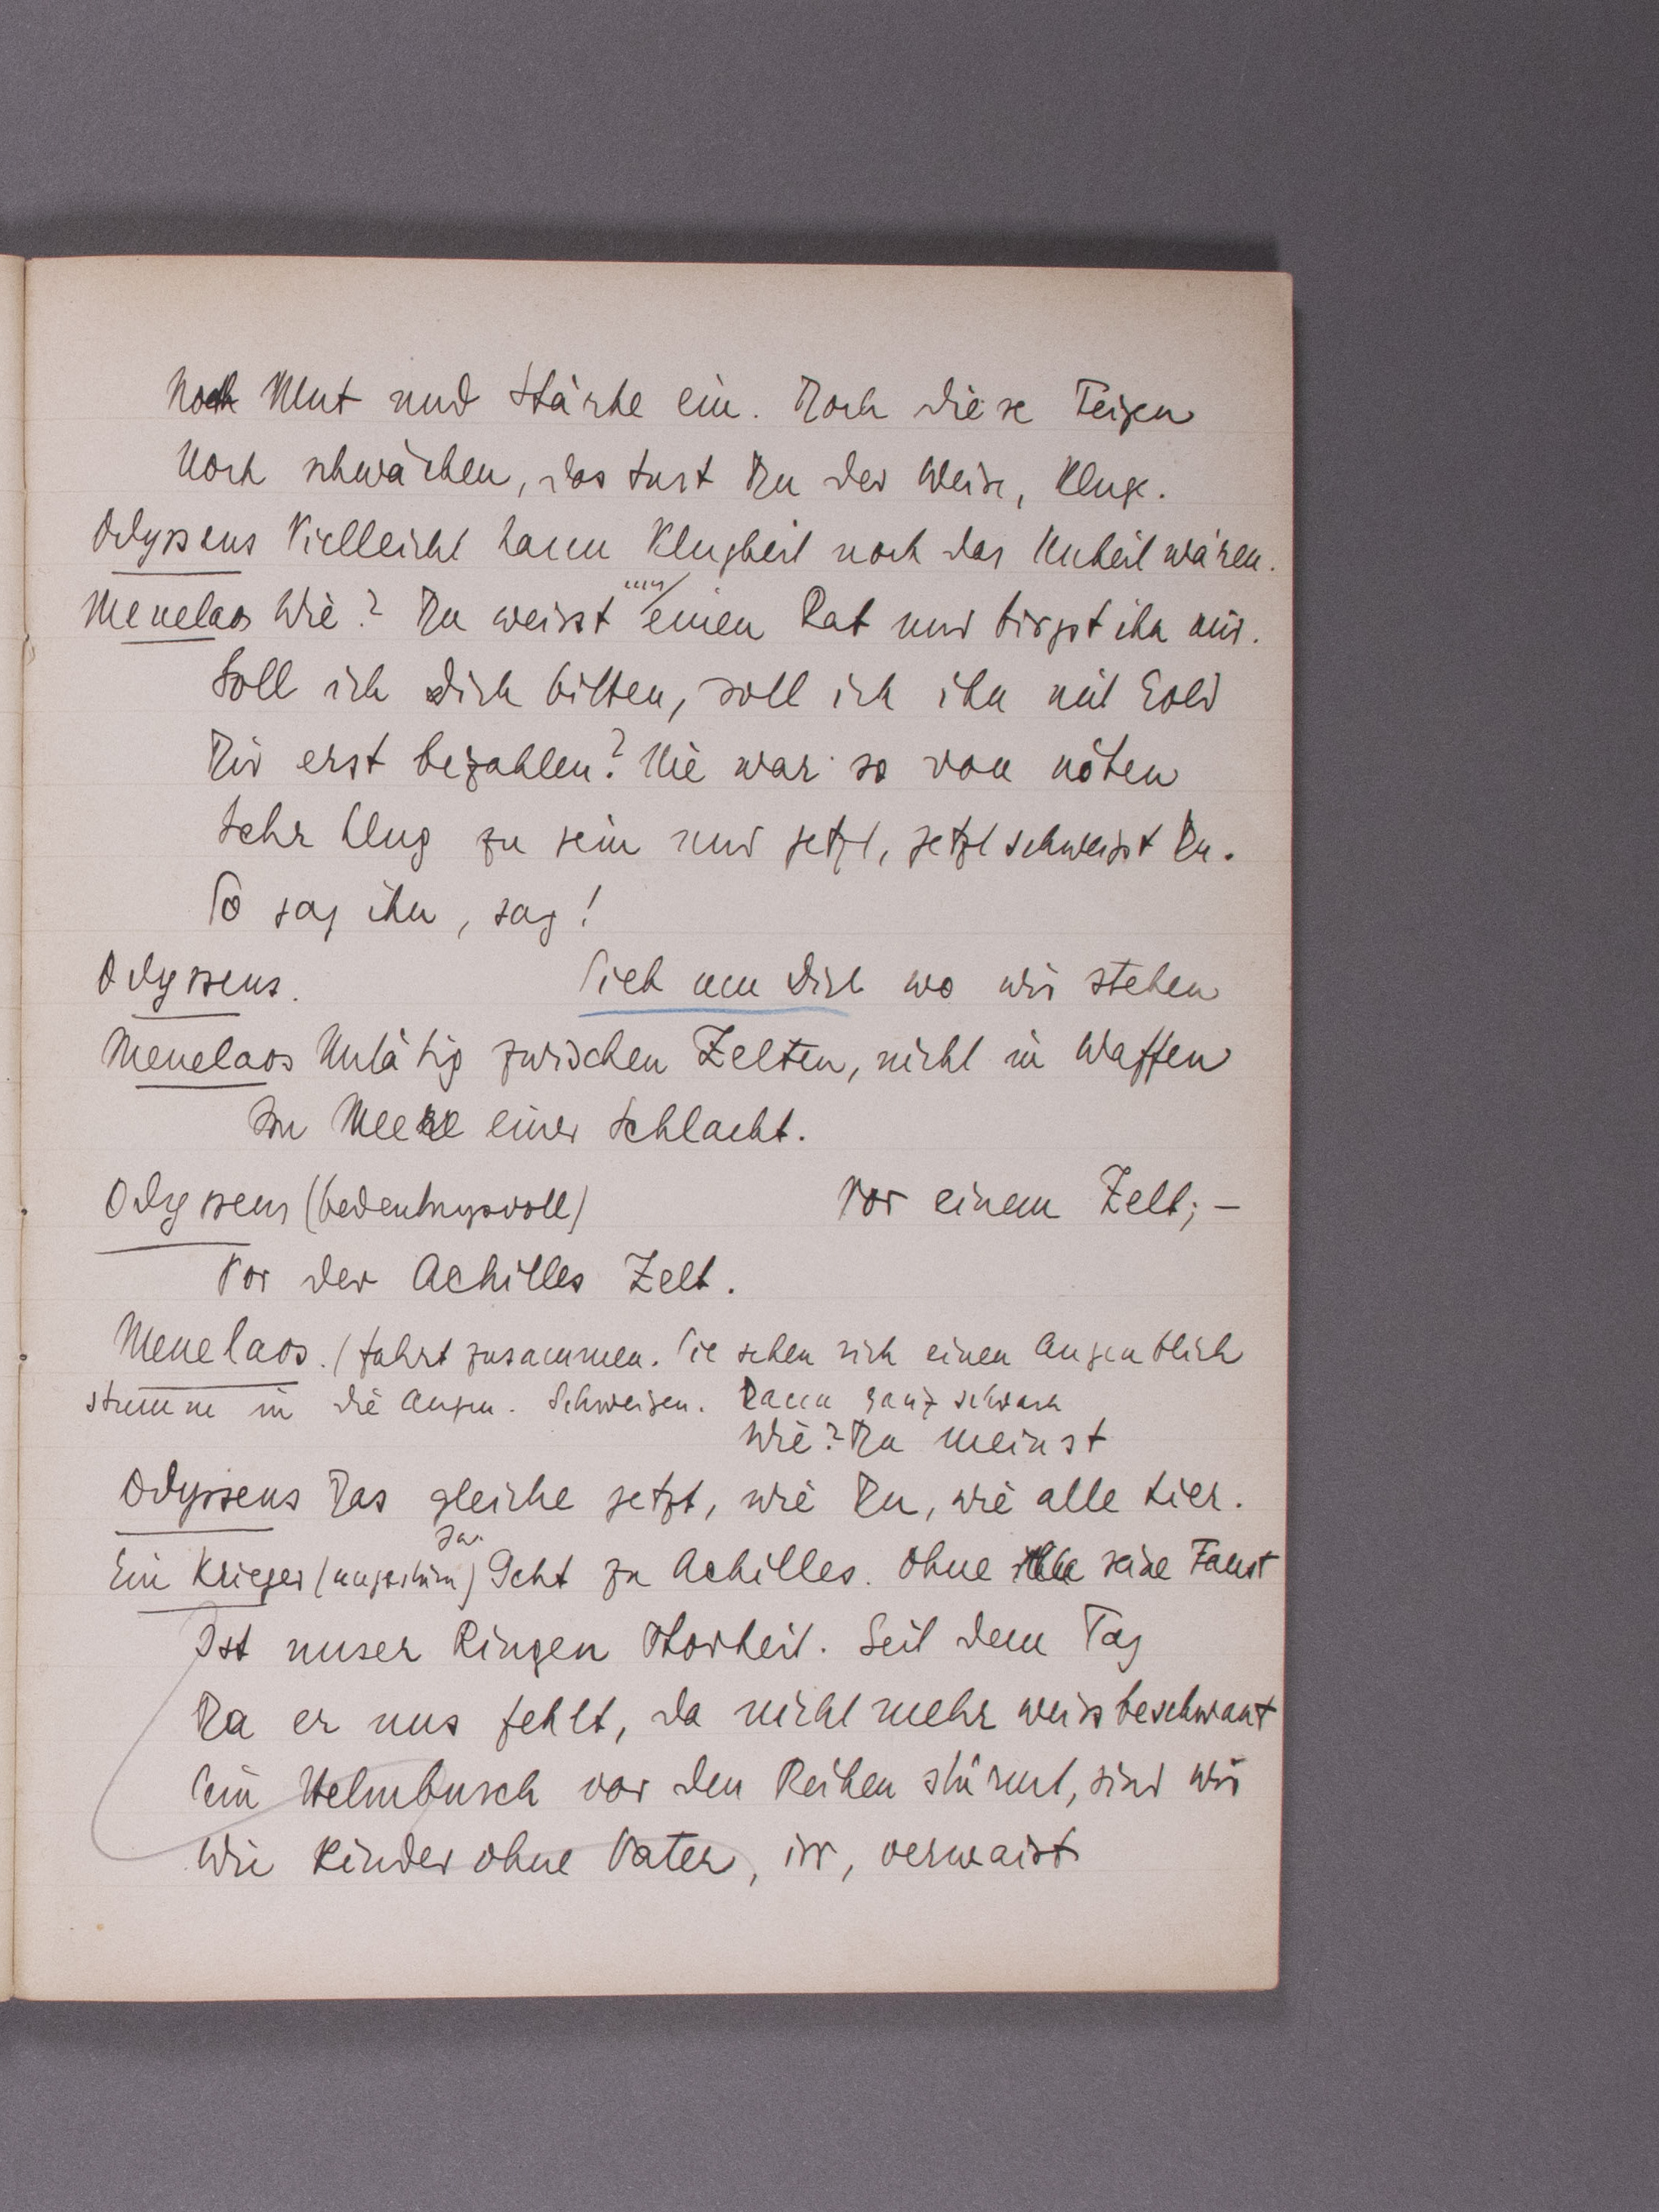 Noch Mut und Stärke ein. Doch diese Feigen
Noch schwächen, das tust Du der Weise, Kluge.
Odysseus Vielleicht kann Klugheit noch das Unheil wären.
Menelaos Wie? Du weisst einen Rat und birgst ihn mir.
Soll ich Dich bitten, soll ich ihn mit Gold
Dir erst bezahlen? Nie war so von nöten
Sehr klug zu sein und jetzt, jetzt schweigst Du.
So sag ihn, sag!
Odysseus. Sieh um Dich wo wir stehen
Menelaos Untätig zwischen Zelten, nicht in Waffen
Im Meere einer Schlacht.
Odysseus (bedeutungsvoll) Vor einem Zelt; –
Vor des Achilles Zelt.
Menelaos. (fahrt zusammen. Sie sehen sich einen Augenblick
stumm in die Augen. Schweigen. Dann ganz schwach
Wie? Du meinst
Odysseus Das gleiche jetzt, wie Du, wie alle hier.
Ja.
Ein Krieger (ungestüm) Geht zu Achilles. Ohne seine Faust
Ist unser Ringen Thorheit. Seit dem Tag
Da er uns fehlt, da nicht mehr weissbeschwant
Sein Helmbusch vor den Reihen stürmt, sind wir
Wie Kinder ohne Vater, irr, verwaist